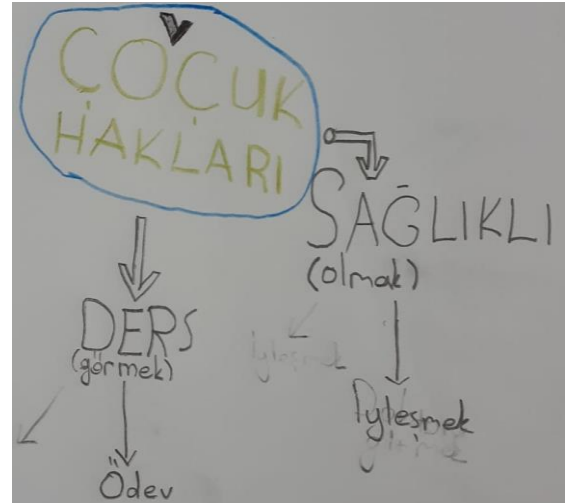 ÇOCUK
HAKLARI
SAĞLIKLI
(olmak)
DERS
(görmek)
İyleşmek
İyleşmek
Ödev